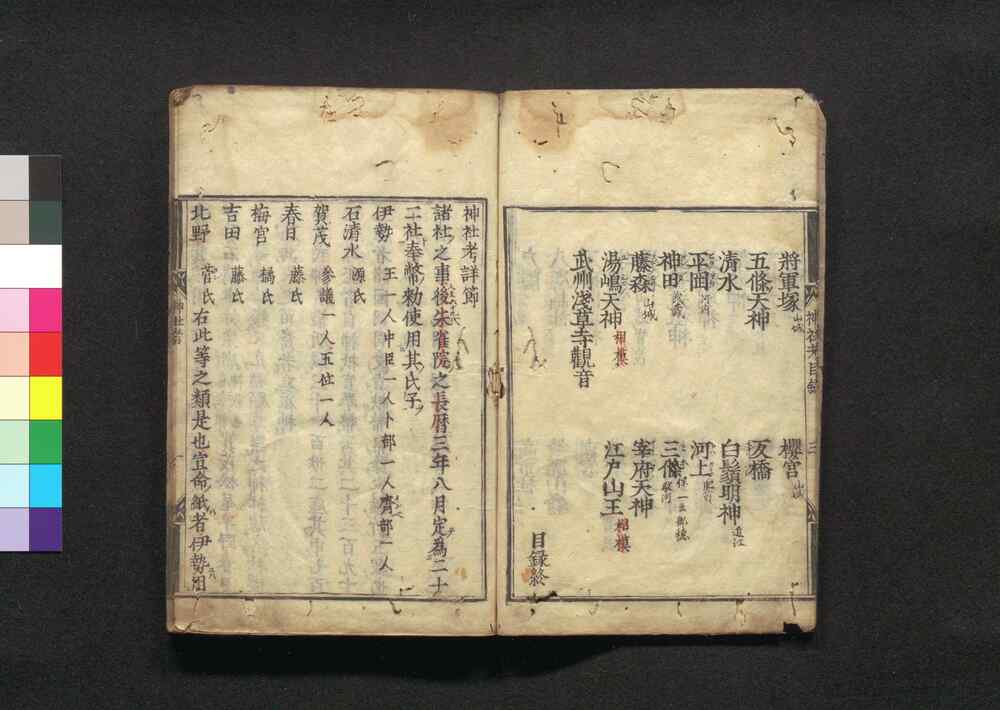 將軍塚 山城
櫻宮 山城
五條天神
反橋
清水
白鬚明神 近江
平岡 河内
河上 肥前
神田 武蔵
藤森 山城
宰府天神
湯嶋天神 相模
江戸山王 相模
武州淺草寺觀音
目録終
神社考詳節
諸社之事後朱雀院之長暦三年八月定為二十
二社奉幣勅使用其氏子
伊勢 王一人中臣一人卜部一人齋部一人
石清水 源氏
賀茂 參議一人五位一人
春日 藤氏
梅宮 橘氏
吉田 藤氏
北野 菅氏 右此等之類是也宣命紙者伊勢用